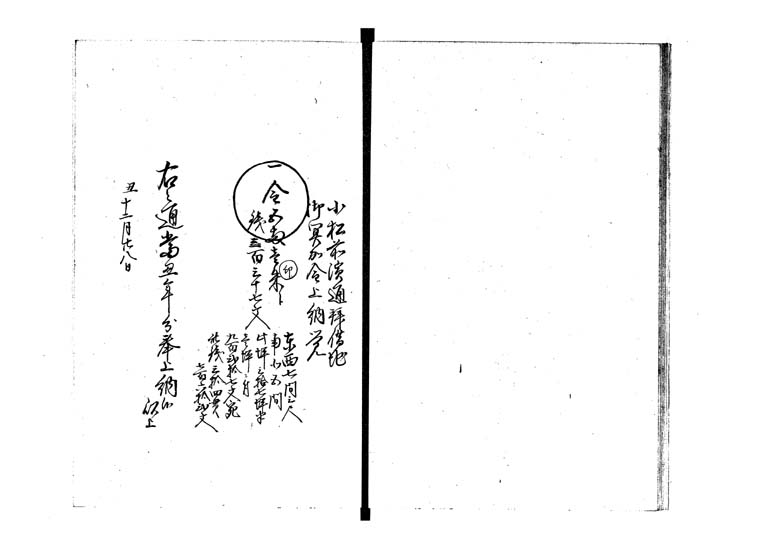 小松前濱通拝借地
御冥加金上納覚
一金五両壱朱ト
印
銭三百三十七文
東西七間三尺
南北五間
此坪三拾七坪半
壱坪ニ付
九百弐拾七文宛
此銭三拾四貫
七百六拾弐文
右之通當丑年分奉上納候
以上
丑十二月廿八日